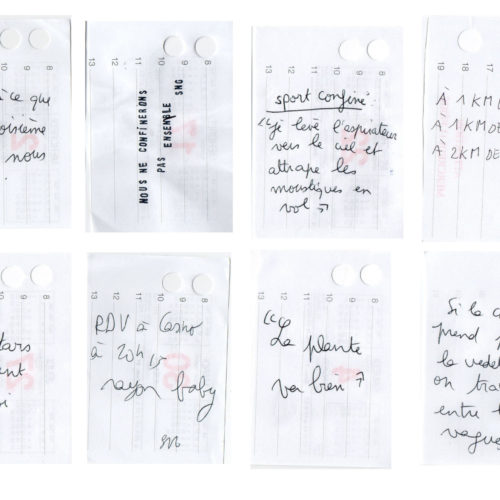 à ce que
oisième
nous
13 12 11 10 9 8
NOUS NE CONFINERONS
PAS ENSEMBLE SNG
13 12 11 10 9 8
sport confiné
“je lève l'aspirateur
vers le ciel et
attrape les
moustiques en
vol”
19 18 17
À 1 KM D
À 1 KM DE
À 2KM DE
10 9 8
tars
ent
i
13 12 11 10 9 8
RDV à Casino
à 20h15
rayon baby
13 12 11 10 9 8
“La plante
va bien”
13
Si la
prend p
la vedet
on tra
entre l
vague